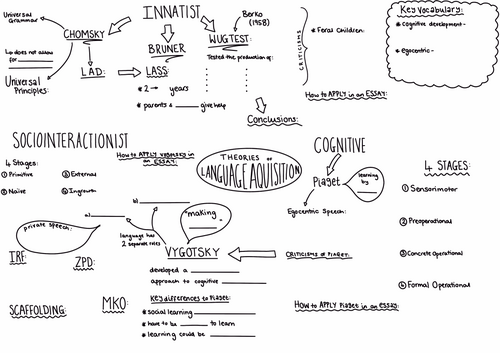 INNATIST
Universal
Grammar
CHOMSKY
↳ does not allow
for
Universal
Principles:
LAD:
BRUNER
LASS:
* 2 → years
* parents & give help
WUGTEST:
Berko
(1958)
Tested the production of:
Conclusions:
CRITICISMS
* Feral Children:
How to APPLY in an ESSAY:
Key Vocabulary:
* cognitive development -
* egocentric -
SOCIOINTERACTIONIST
4 Stages:
① Primitive
② Naive
③ External
④ Ingrown
How to APPLY Vygotsky in an
ESSAY:
THEORIES OF
LANGUAGE AQUISITION
COGNITIVE
Piaget
learning
by
Egocentric Speech:
4 STAGES:
① Sensorimotor
② Preoperational
③ Concrete Operational
④ Formal Operational
a)
b)
language has
2 separate roles
"making
"
private speech:
IRF:
ZPD:
VYGOTSKY
developed a
approach to cognitive
CRITICISMS OF PIAGET:
SCAFFOLDING:
MKO:
Key differences to Piaget:
* social learning
* have to be to learn
* learning could be
How to APPLY Piaget in an ESSAY: